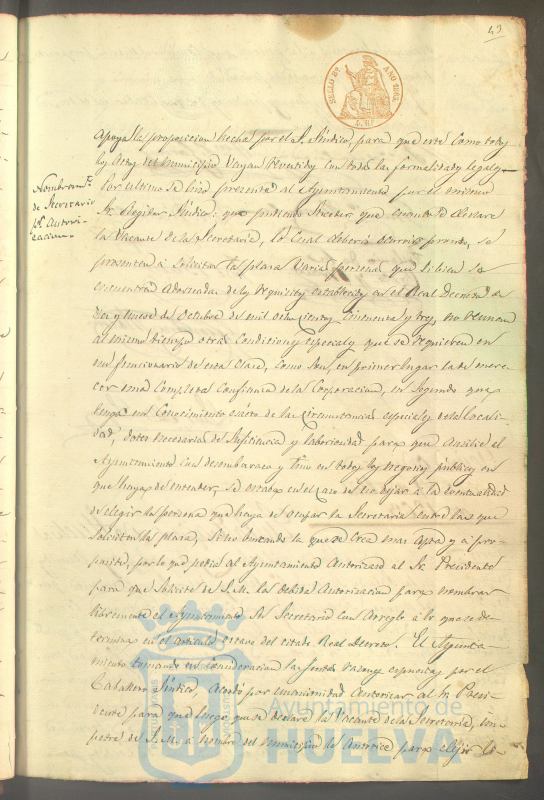 43
SELLO 8º AÑO 1863
apoya la proposicion hecha por el S. Síndico, para que este como todos
los actos del municipio vayan revestidos con todas las formalidades legales.
Nombramto.
de Secretario
pr. autori-
zacion
Por ultimo se hizo presente al Ayuntamiento por el mismo
Sr. Regidor Síndico: que pudiendo suceder que cuando se declare
la vacante de la Secretaría, lo cual deberá ocurrir pronto, se
presenten á solicitar la plaza varias personas que si bien se
encuentran adornadas de los requisitos establecidos en el Real Decreto de
diez y nueve de Octubre de mil ochocientos cincuenta y tres, no reunan
al mismo tiempo otras condiciones especiales que se requieren en
un funcionario de esta clase, como son, en primer lugar la de mere-
cer una completa confianza de la Corporacion, en segundo que
tenga un conocimiento exacto de las circunstancias especiales de la locali-
dad, dotes necesarias de suficiencia y laboriosidad para que auxilie al
Ayuntamiento con desembarazo y tino en todos los negocios públicos en
que haya de entender, se estaba en el caso de no dejar á la eventualidad
de elegir la persona que haya de ocupar la Secretaria entre las que
soliciten la plaza, sino buscando la que se crea mas apta y á pro-
posito, por lo que pedia al Ayuntamiento autorizase al Sr. Presidente
para que solicite de S. M. la debida autorizacion para nombrar
libremente el Ayuntamiento su Secretario con arreglo á lo que se de-
termina en el articulo del citado Real Decreto. El Ayunta-
miento tomando en consideracion las justas razones espuestas por el
Caballero Síndico, acordó por unanimidad autorizar al Sr. Presi-
dente para que luego que se declare la vacante de la Secretaría, im-
petre de S. M. á nombre del municipio le autorice para elejir li-
Ayuntamiento de
HUELVA